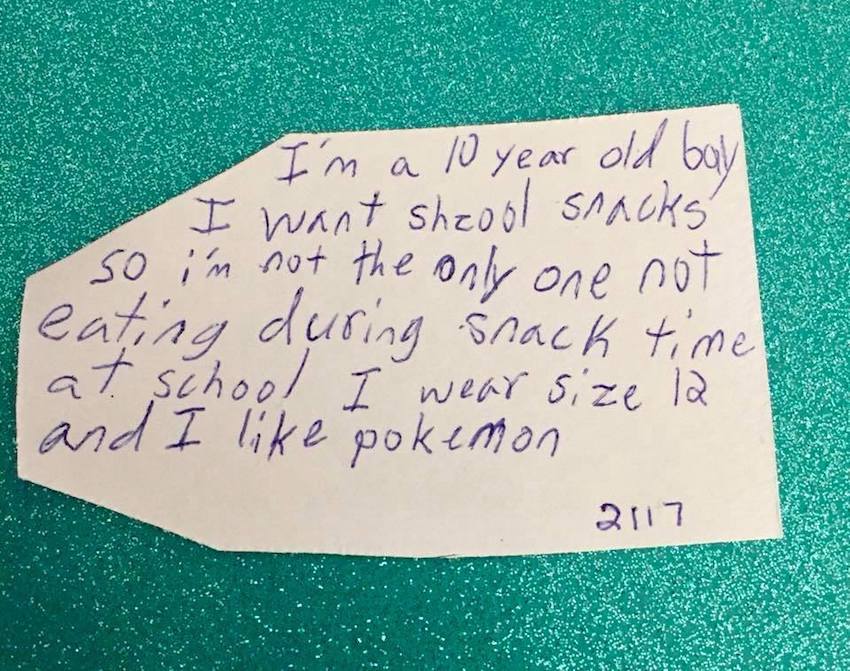 I'm a 10 year old boy
I want shcool snacks
so i'm not the only one not
eating during snack time
at school I wear size 12
and I like pokemon
2117